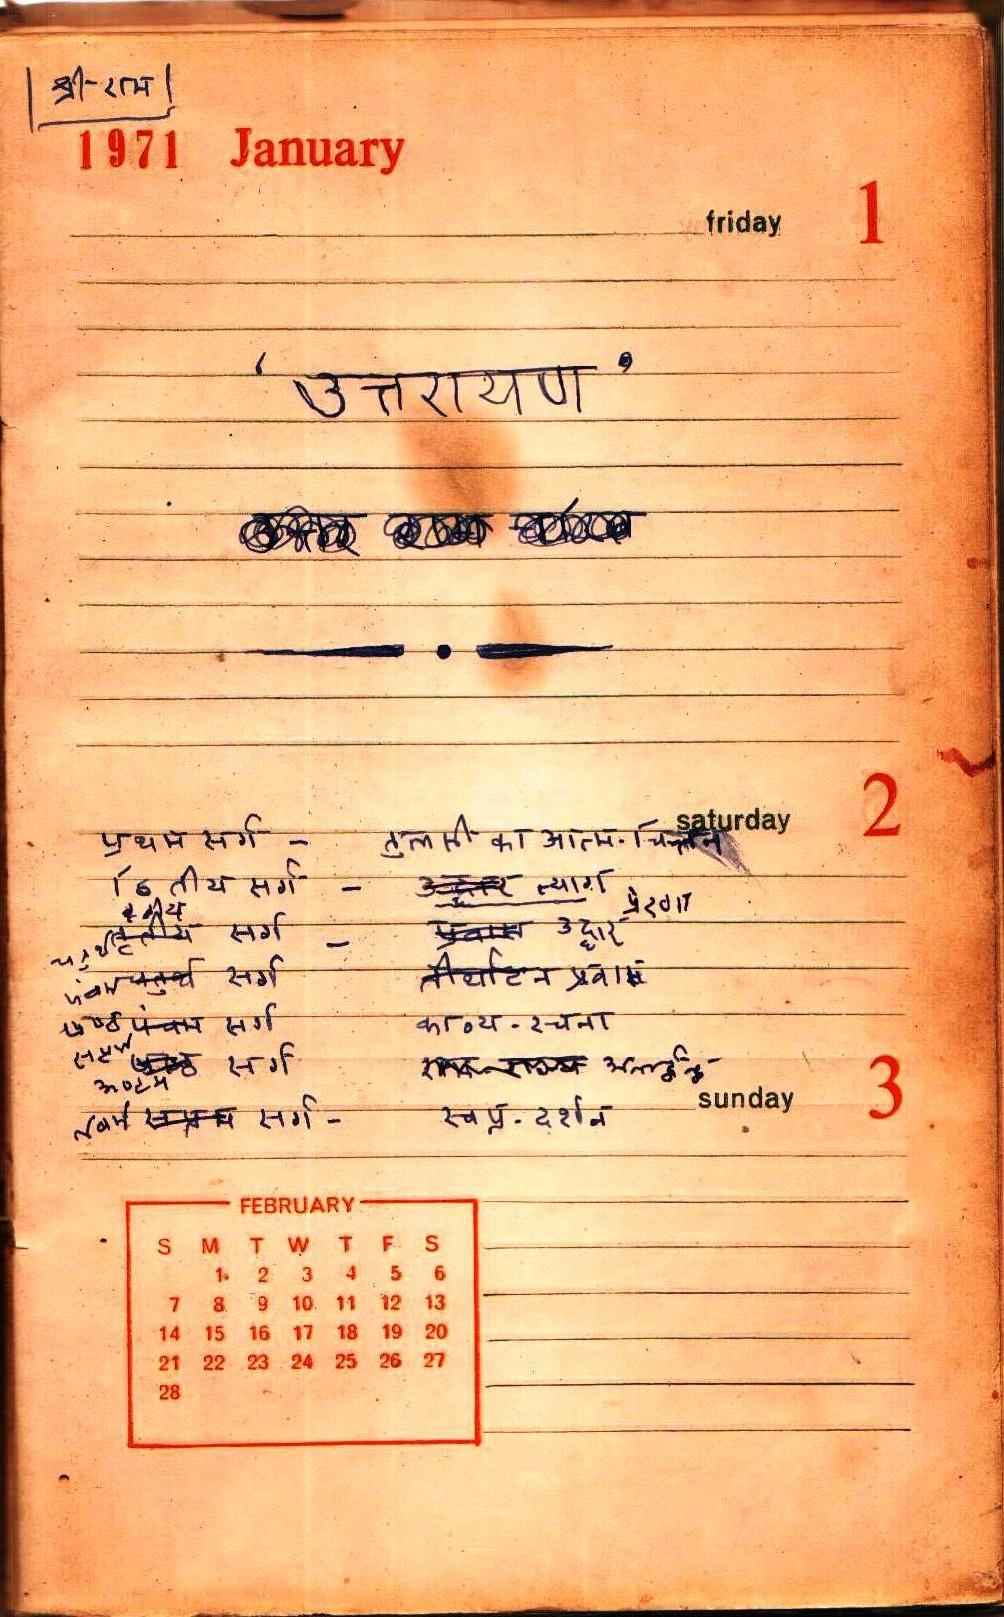 श्री-राम
1971 January
friday 1
‘उत्तरायण’
2
saturday
प्रथम सर्ग - तुलसी का आत्म-चिन्तन
द्वितीय सर्ग - त्याग
तृतीय प्रेरणा
चतुर्थ तृतीय सर्ग - प्रवास उद्धार
पंचम चतुर्थ सर्ग तीर्थाटन प्रवास
षष्ठ पंचम सर्ग काव्य-रचना
सप्तम षष्ठ सर्ग
अष्टम
sunday 3
नवम सप्तम सर्ग - स्वप्न-दर्शन
FEBRUARY
S M T W T F S
1 2 3 4 5 6
7 8 9 10 11 12 13
14 15 16 17 18 19 20
21 22 23 24 25 26 27
28